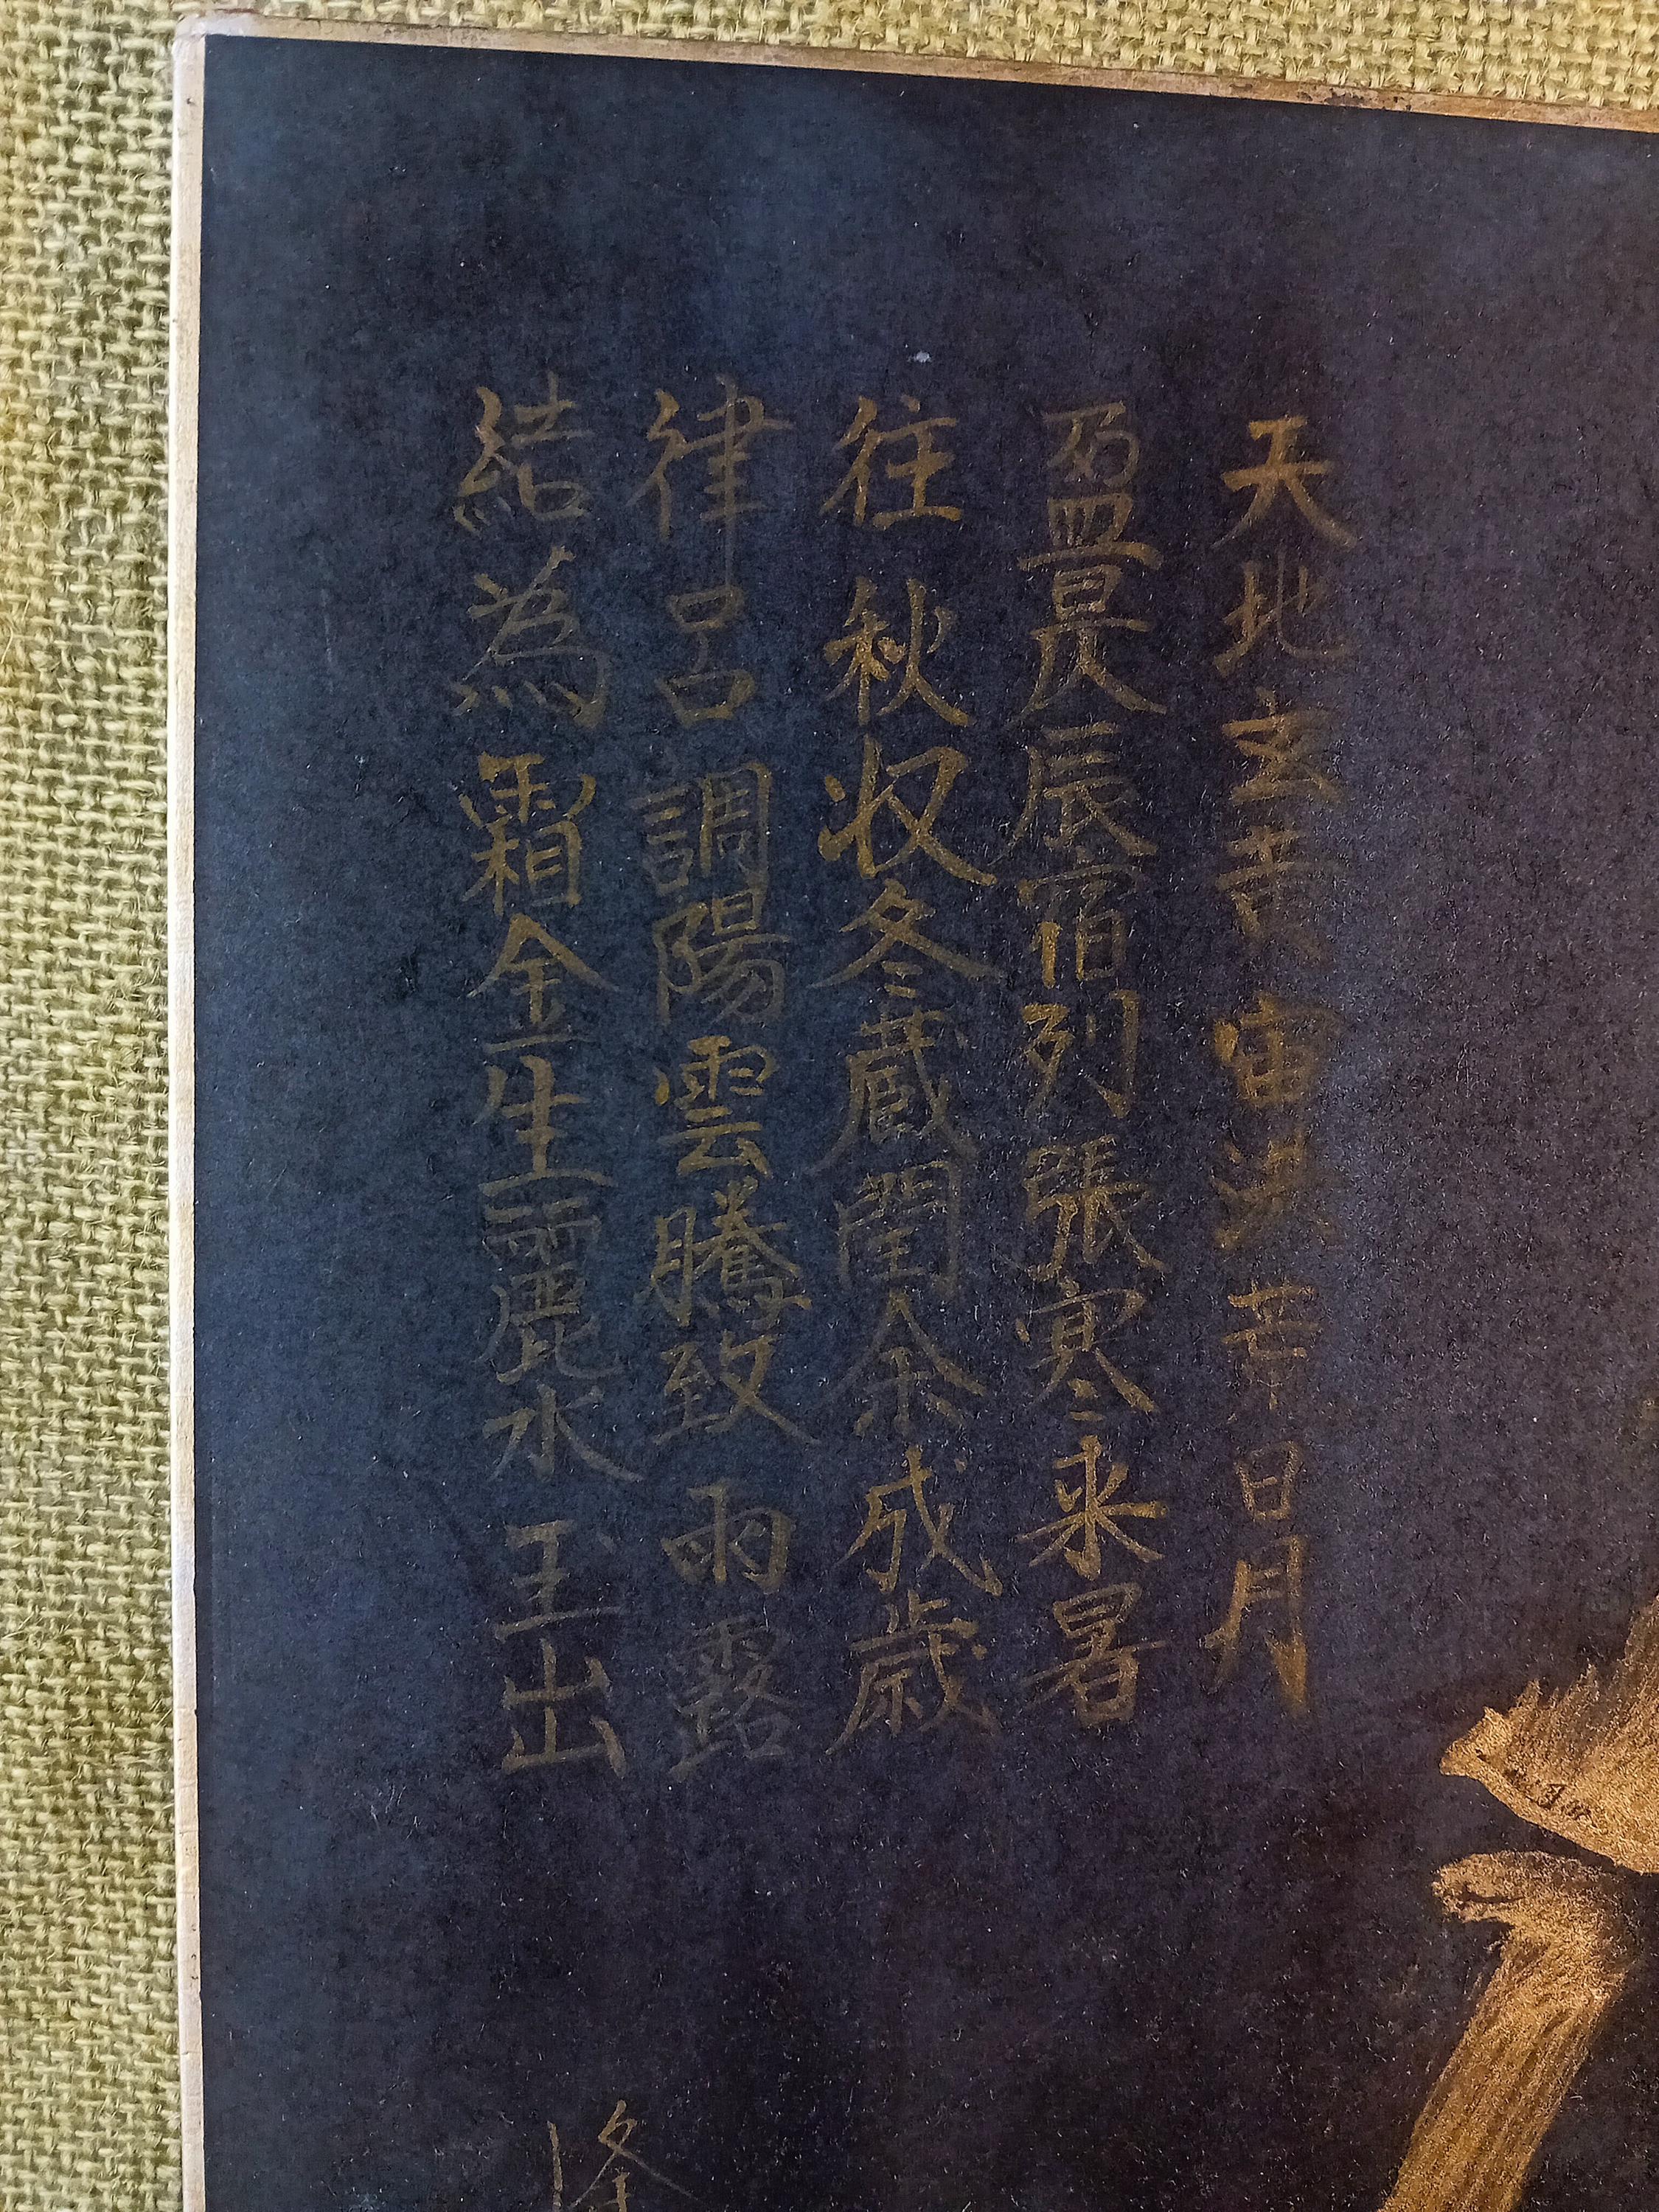 天地玄黄宙洪荒日月
盈昃辰宿列張寒来暑
往秋収冬蔵閏余成歳
律呂調陽雲騰致雨露
結為霜金生麗水玉出